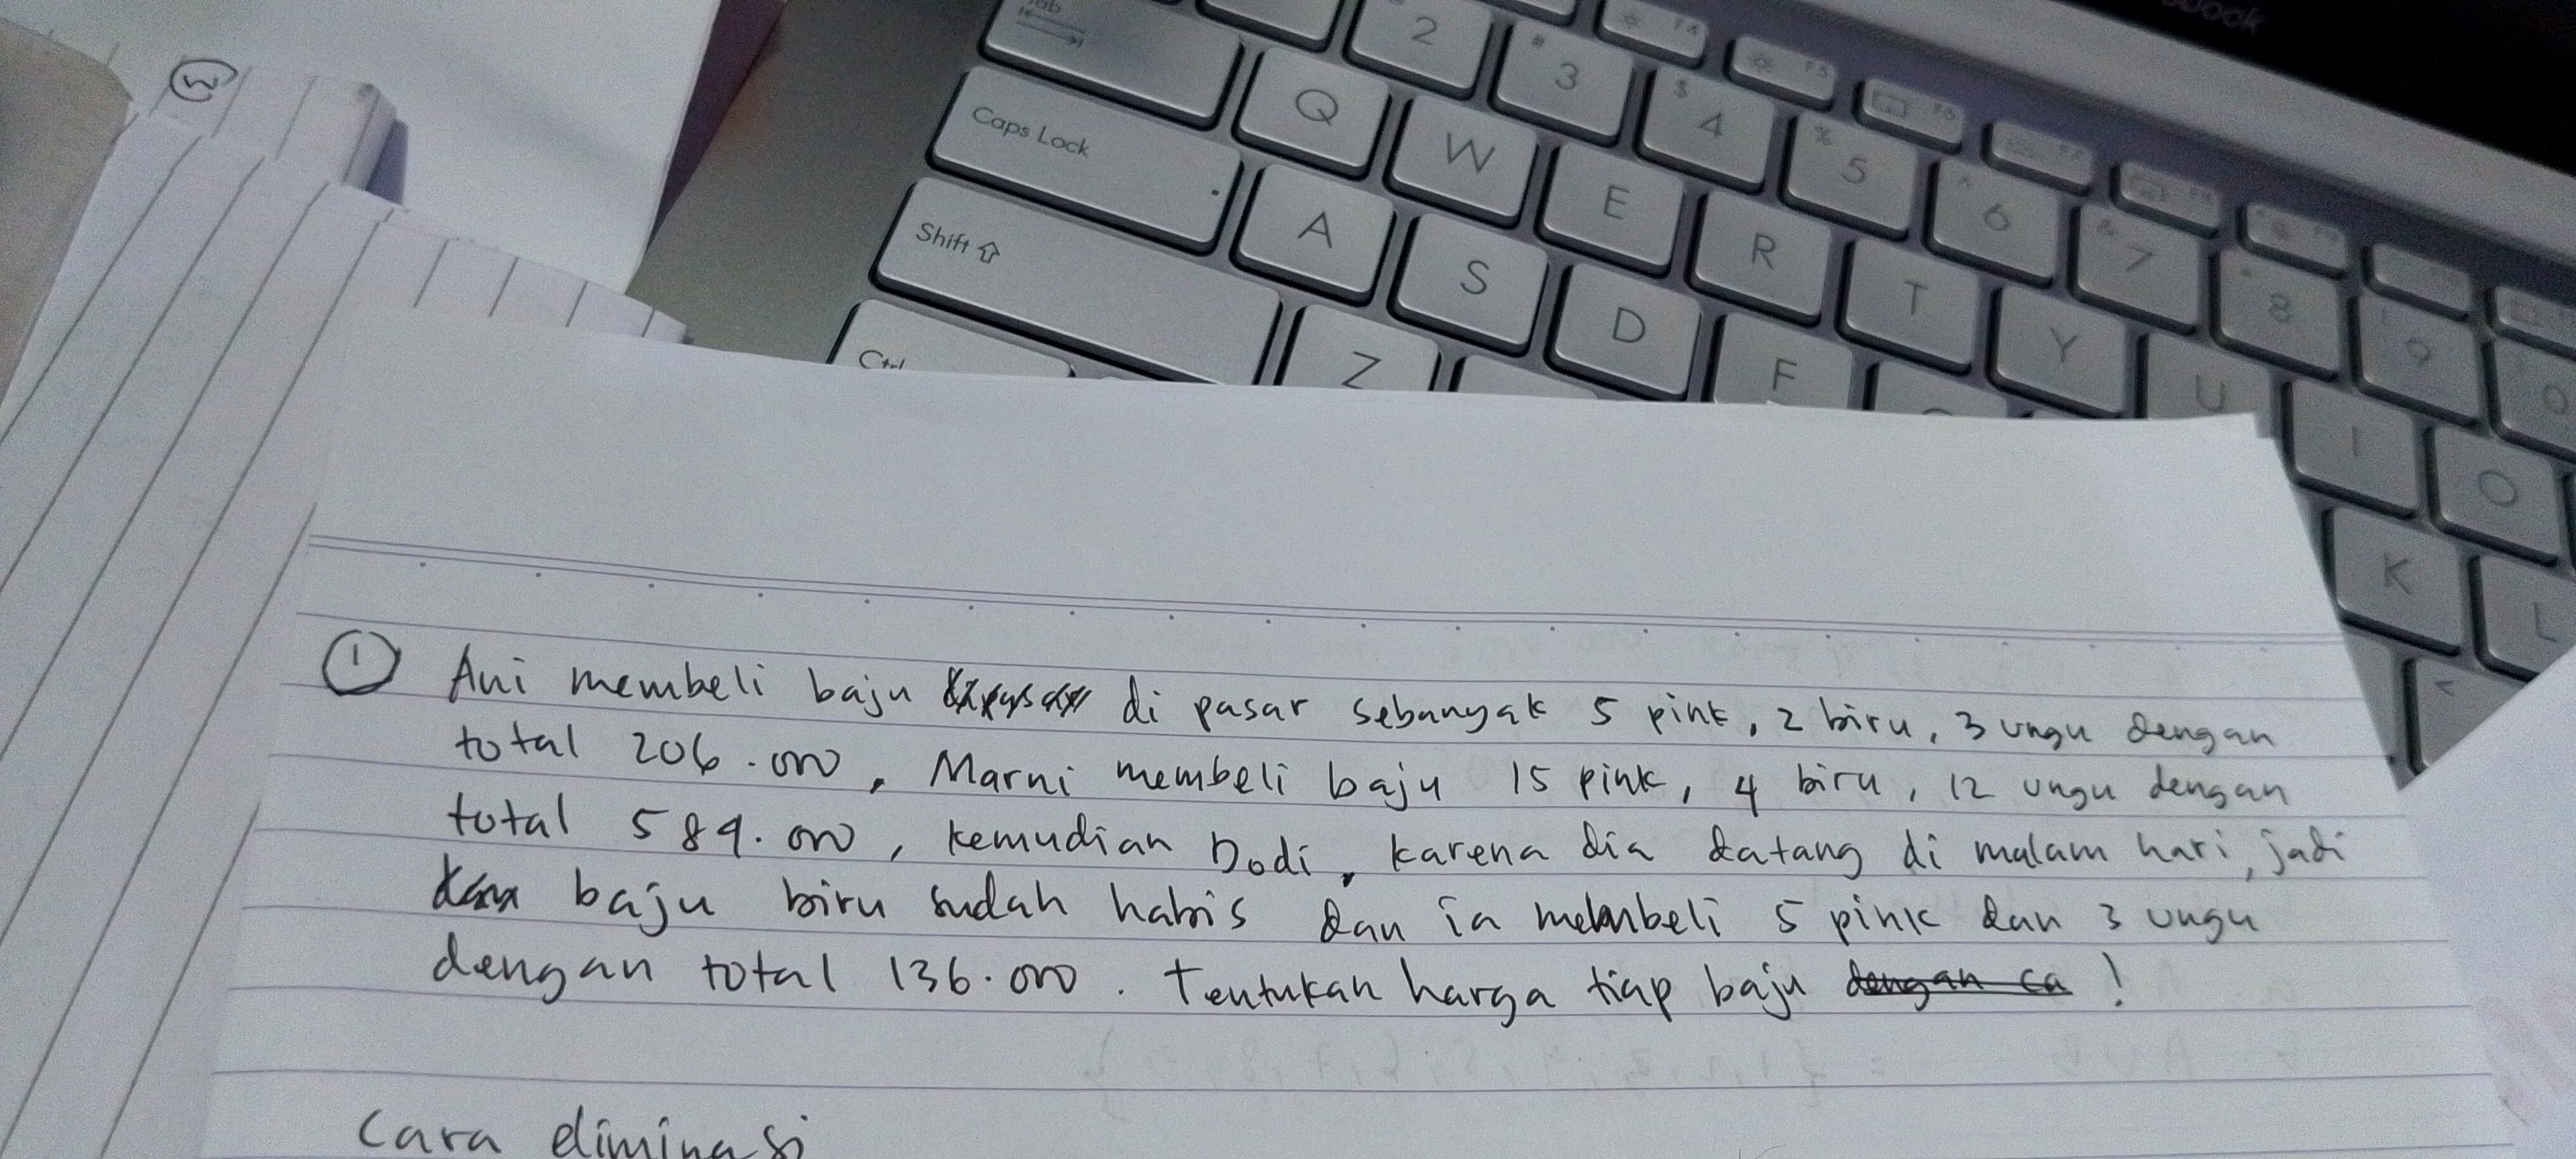 3
Tab
2
# 3
$ 4
% 5
^ 6
& 7
* 8
9
0
F4
F5
F6
Caps Lock
Q W E R T Y U I O
Shift
A S D F K L
Ctrl
Z
<
1 Ani membeli baju di pasar sebanyak 5 pink, 2 biru, 3 ungu dengan
total 206.000, Marni membeli baju 15 pink, 4 biru, 12 ungu dengan
total 589.000, kemudian Dodi, karena dia datang di malam hari, jadi
baju biru sudah habis dan ia membeli 5 pink dan 3 ungu
dengan total 136.000. Tentukan harga tiap baju dengan ca !
Cara eliminasi